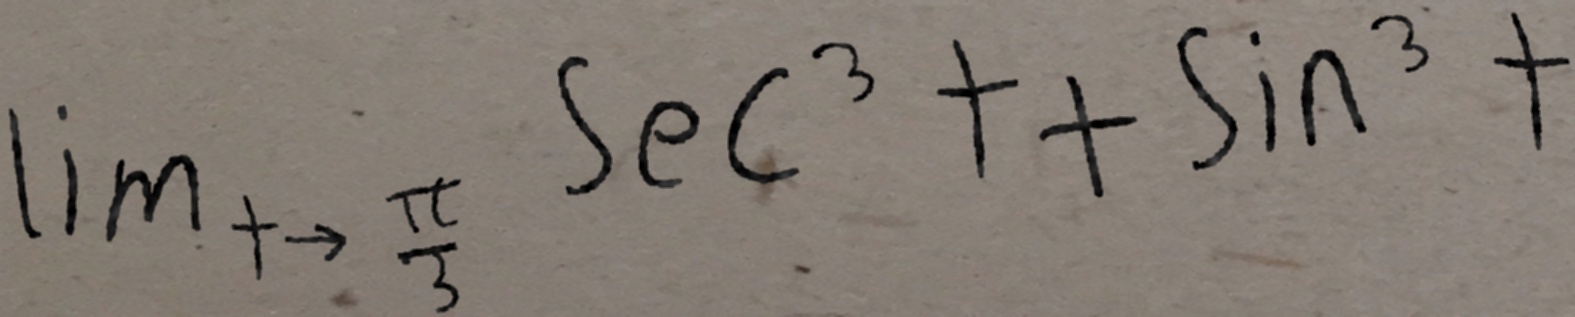 lim t→π/3 sec³ t + sin³ t